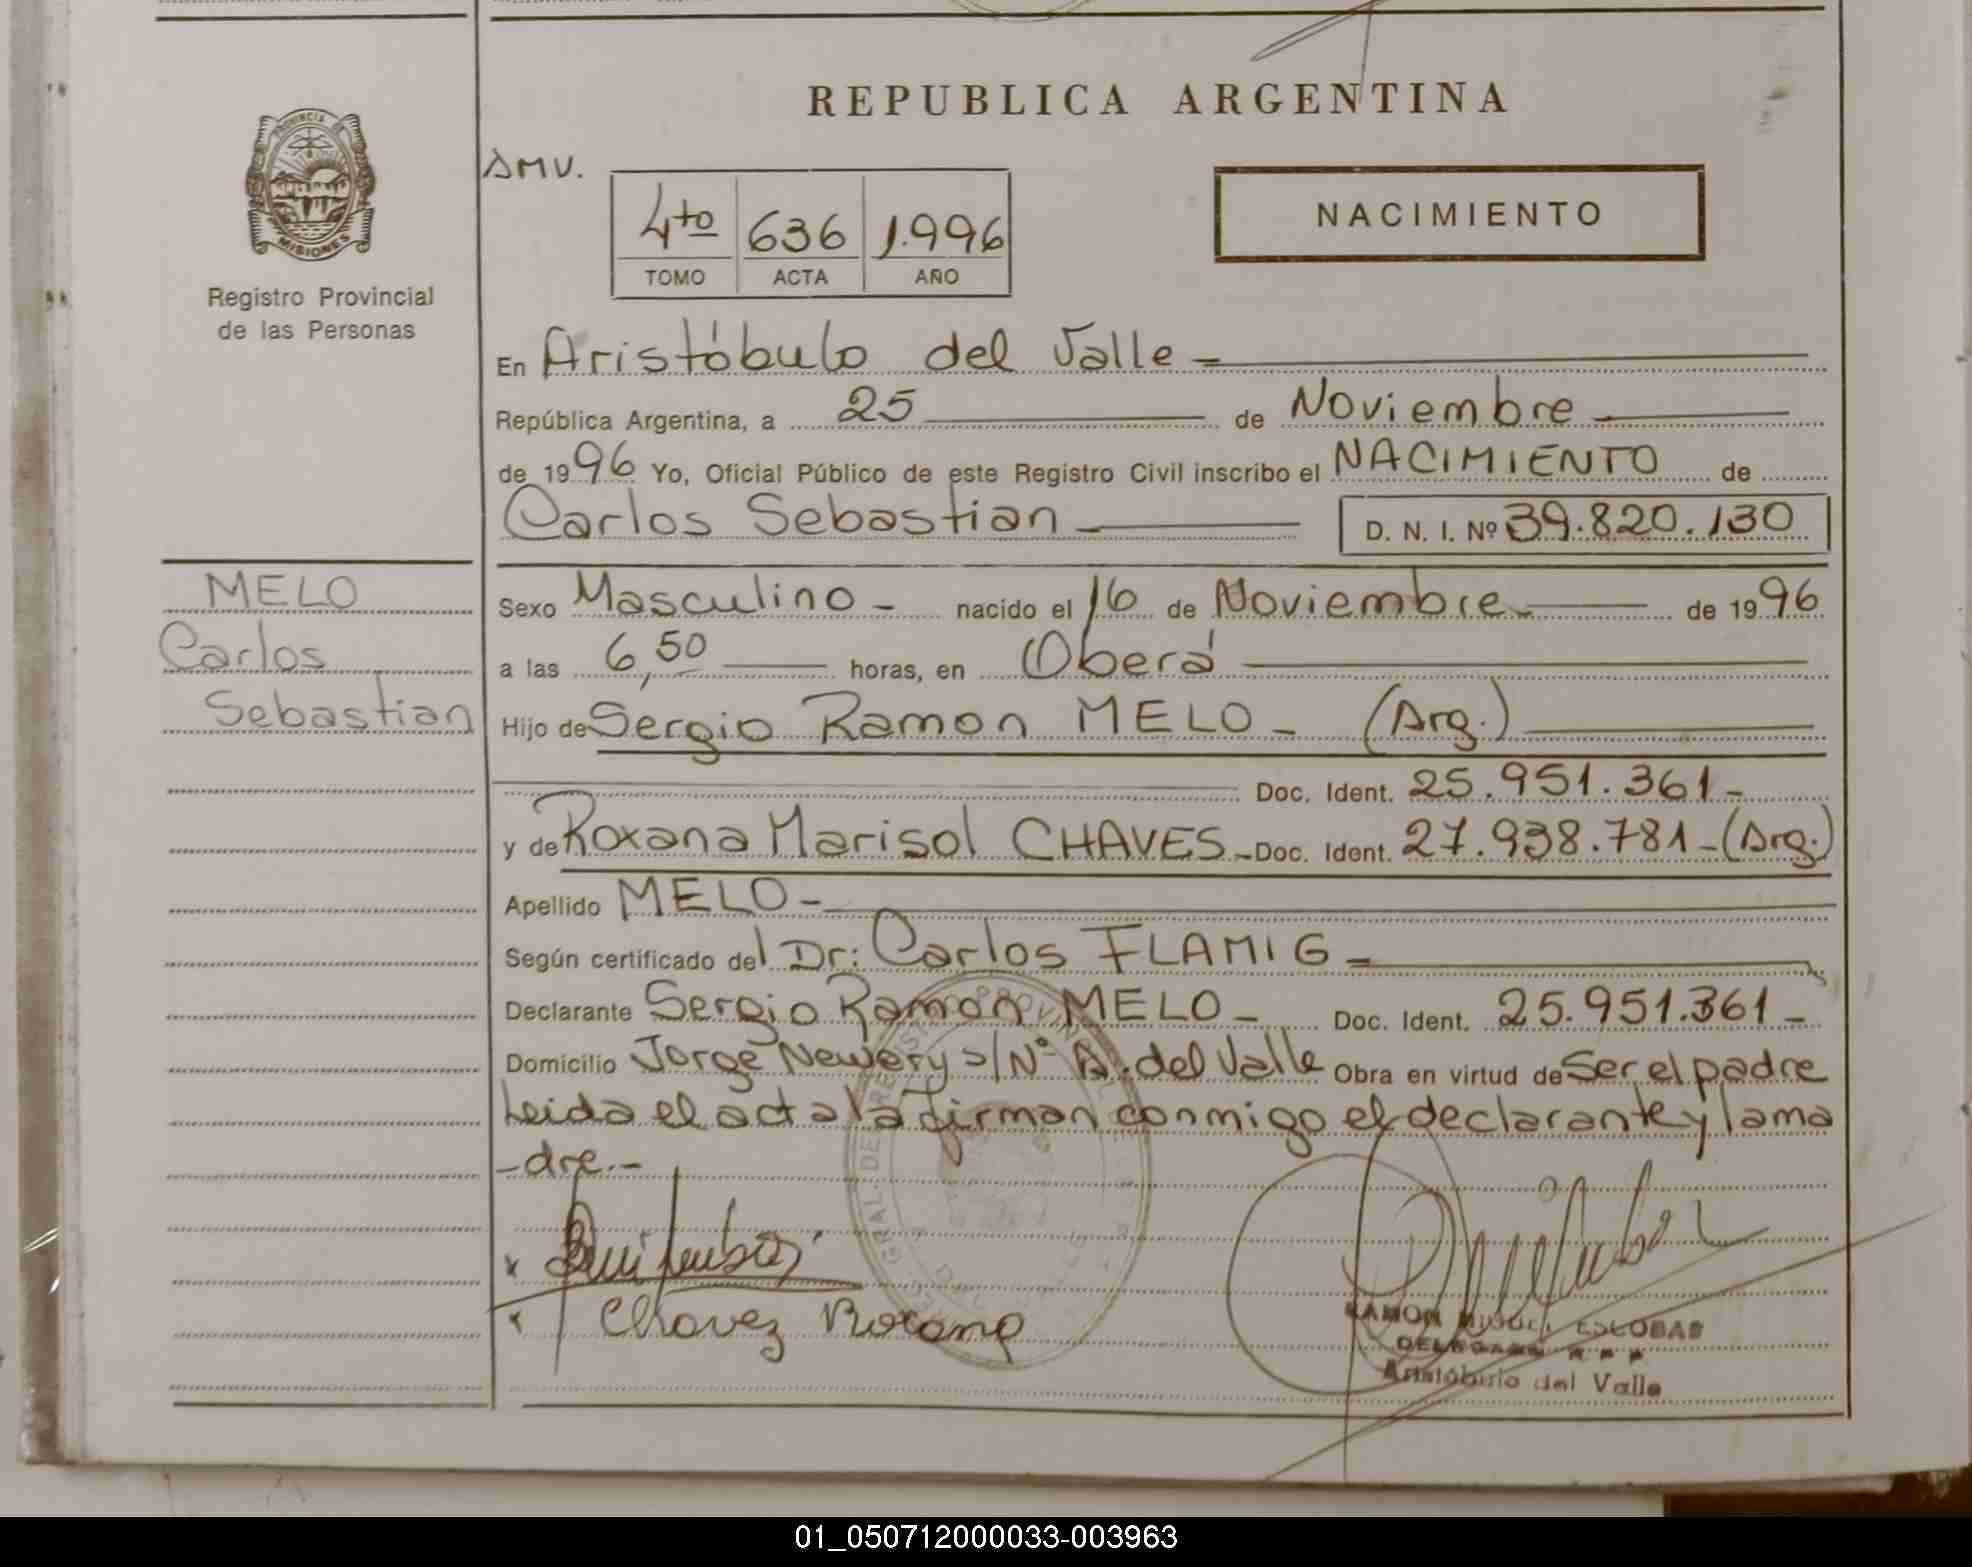 REPUBLICA ARGENTINA
PROVINCIA DE
MISIONES
Registro Provincial
de las Personas
AMV.
4to 636 1.996
TOMO ACTA AÑO
NACIMIENTO
En Aristóbulo del Valle -
República Argentina, a 25 de Noviembre -
de 1996 Yo, Oficial Público de este Registro Civil inscribo el NACIMIENTO de
Carlos Sebastian - D. N. I. Nº 39.820.130
MELO
Carlos
Sebastian
Sexo Masculino - nacido el 16 de Noviembre - de 1996
a las 6,50 horas, en Oberá
Hijo de Sergio Ramon MELO - (Arg.)
Doc. Ident. 25.951.361 -
y de Roxana Marisol CHAVES - Doc. Ident. 27.938.781 - (Arg.)
Apellido MELO -
Según certificado del Dr: Carlos FLAMIG -
Declarante Sergio Ramon MELO - Doc. Ident. 25.951.361 -
Domicilio Jorge Newery s/Nº A. del Valle Obra en virtud de Ser el padre
Leida el acta la firman conmigo el declarante y la ma
-dre.-
Chavez Roxana
RAMON MIGUEL ESCOBAR
Aristóbulo del Valle
01_050712000033-003963